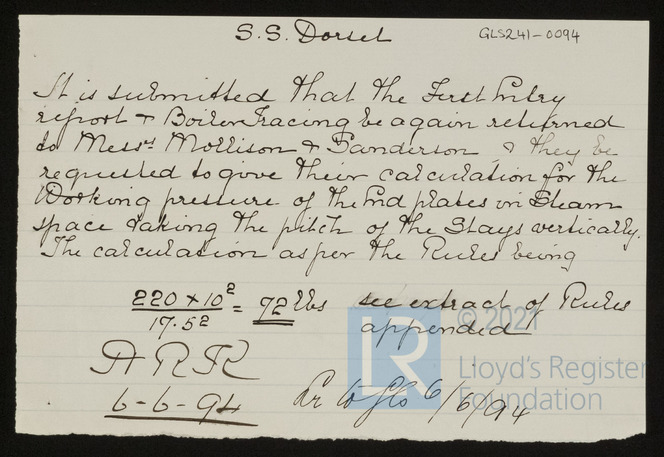 S.S. Dorset
GLS241-0094
It is submitted that the First Entry
report & Boiler Tracing be again returned
to Messrs Mollison & Sanderson & they be
requested to give their calculation for the
Working pressure of the End plates in Steam
space taking the pitch of the Stays vertically.
The calculation as per the Rules being
220 x 10²
17.5² = 72 lbs see extract of Rules
appended
A R K
6-6-94
Lr to Gls 6/6/94
© 2021
LR
Lloyd's Register
Foundation